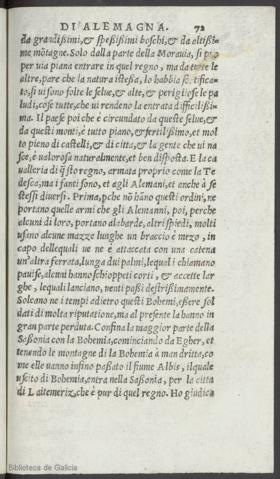 DI ALEMAGNA. 72
da grandißimi, & speßißimi boschi, & da altißi-
me mõtagne. Solo dalla parte della Morauia, si po
per uia piana entrare in quel regno, ma da tutte le
altre, pare che la natura istessa, lo habbia fortifica-
to, si ui sono folte le selue, & alte, & perigliose le pa
ludi, cose tutte, che ui rendeno la entrata difficilißi-
ma. Il paese poi che è circundato da queste selue, &
da questi monti, è tutto piano, & fertilißimo, et mol
to pieno di castelli, & di citta, & la gente che ui na
sce, è valorosa naturalmente, et ben disposta. E la ca
ualleria di q̃sto regno, armata proprio come la Te
desca, ma i fanti sono, et agli Alemani, et anche à se
stessi diuersi. Prima, pche nõ hãno questi ordini, ne
portano quelle armi che gli Alemanni, poi, perche
alcuni di loro, portano alabarde, altri spiedi, molti
usano alcune mazze lunghe un braccio è mezo, in
capo delle quali ue ne è attaccata con una catena
un'altra ferrata, lunga dui palmi, le quali chiamano
pauise, alcuni hanno schioppeti corti, & accette lar
ghe, lequali lanciano, uenti paßi destrißimamente.
Soleano ne i tempi adietro questi Bohemi, eßere sol
dati di molta riputatione, ma al presente la hanno in
gran parte perduta. Confina la maggior parte della
Saßonia con la Bohemia, cominciando da Egher, et
tenendo le montagne di la Bohemia à man dritta, co
me elle uanno infino paßato il fiume Albis, ilquale
uscito di Bohemia, entra nella Saßonia, per la citta
di Laitemeriz, che è pur di quel regno. Ho giudica
Biblioteca de Galicia